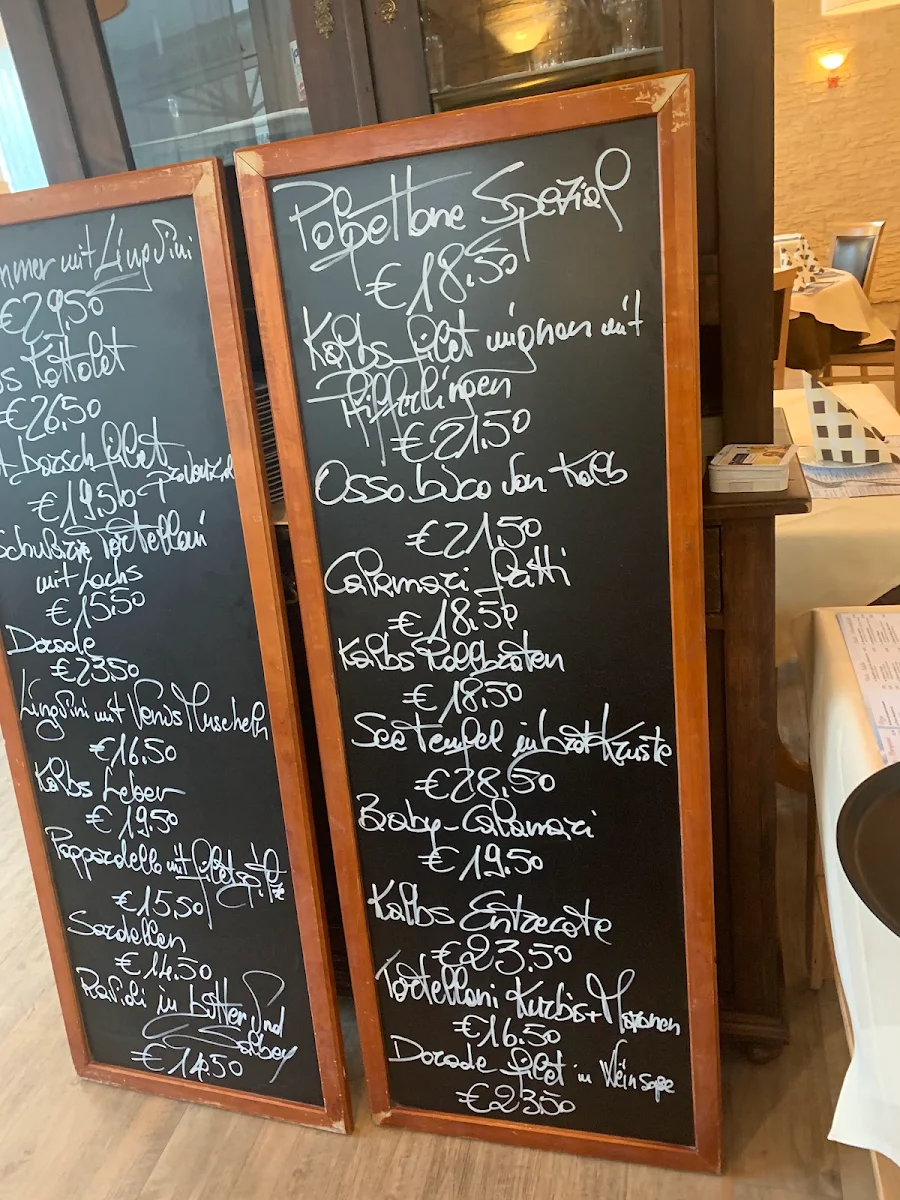 mmer mit Linguini
€29,50
s Kottolet
€26,50
Dorsch filet
€19,50
mit Lachs
€15,50
Dorade
€23,50
Linguini mit Venus Muscheln
€16,50
Kalbs Leber
€19,50
Pappardelle mit filetspitze
€15,50
Sardellen
€14,50
Ravioli in Butter und
Salbey
€14,50
Polpettone Spezial
€18,50
Kalbs filet mignon mit
Pfifferlingen
€21,50
Osso buco von Kalb
€21,50
Calamari fritti
€18,50
Kalbs Rollbraten
€18,50
See Teufel in brot Kruste
€28,50
Baby-Calamari
€19,50
Kalbs Entrecote
€23,50
Tortelloni Kürbis + Maronen
€16,50
Dorade filet in Wein soße
€23,50